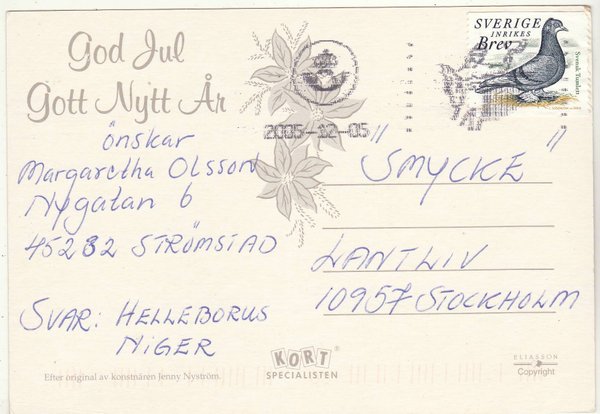 God Jul
Gott Nytt År
önskar
Margaretha Olsson
Nygatan 6
45232 STRÖMSTAD
SVAR: HELLEBORUS
NIGER
Efter original av konstnären Jenny Nyström.
KORT®
SPECIALISTEN
2005-12-05
SVERIGE
INRIKES
Brev
Svensk Tumlare
"SMYCKE"
LANTLIV
10957 STOCKHOLM
ELIASSON
© Copyright